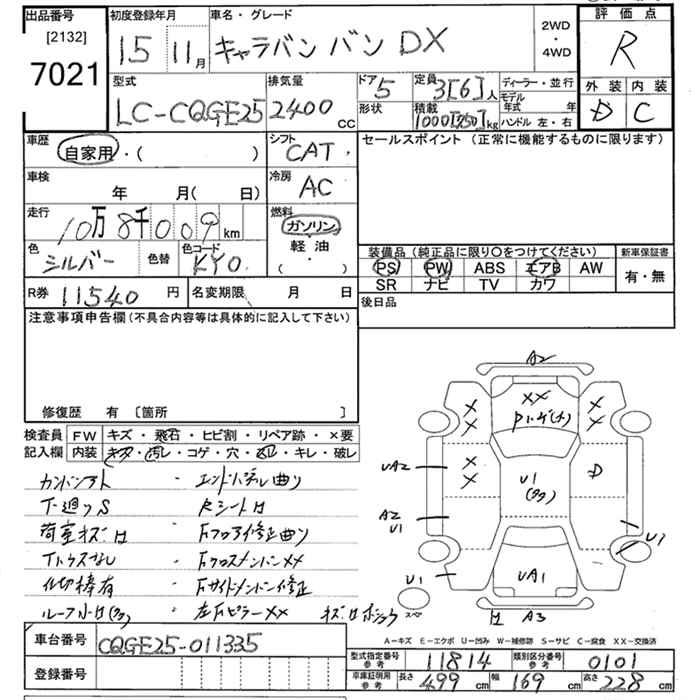 出品番号
[2132]
7021
初度登録年月
15 11月
車名・グレード
キャラバン バン DX
2WD
・
4WD
評価点
R
外装 内装
D C
型式
LC-CQGE25
排気量
2400
CC
ドア
5
定員
3[6]人
ディーラー・並行
モデル
年式 年
形状
積載
1000[750]kg
ハンドル 左・右
車歴
自家用・( )
シフト
CAT
セールスポイント (正常に機能するものに限ります)
車検
年 月( 日)
冷房
AC
走行
10万8千009km
燃料
ガソリン
軽油
( ・ )
色
シルバー
色替
色コード
KY0
装備品(純正品に限り〇をつけてください)
新車保証書
PS PW ABS エアB AW
SR ナビ TV カワ
有・無
R券 11540円
名変期限 月 日
後日品
注意事項申告欄(不具合内容等は具体的に記入して下さい)
修復歴 有 〔箇所 〕
検査員
記入欄
FW キズ・飛石・ヒビ割・リペア跡・×要
内装 キズ・汚レ・コゲ・穴・切レ・キレ・破レ
エンドパネル曲り
下廻りS
Rシートサ
荷室キズ
Fフロア修正曲り
Fクロスメンバーxx
仕切棒有
Fサイドメンバー修正
左Fピラーxx
A2
XX
X
X
X
X
X
X
UA2
A2
U1
U1
D
U1
UA1
スペア
A3
A-キズ E-エクボ U-凹み W-補修跡 S-サビ C-腐食 XX-交換済
車台番号
CQGE25-011335
登録番号
型式指定番号
参考
11814
類別区分番号
参考
0101
車庫証明用
参考
長さ 499cm
幅 169cm
高さ 228cm